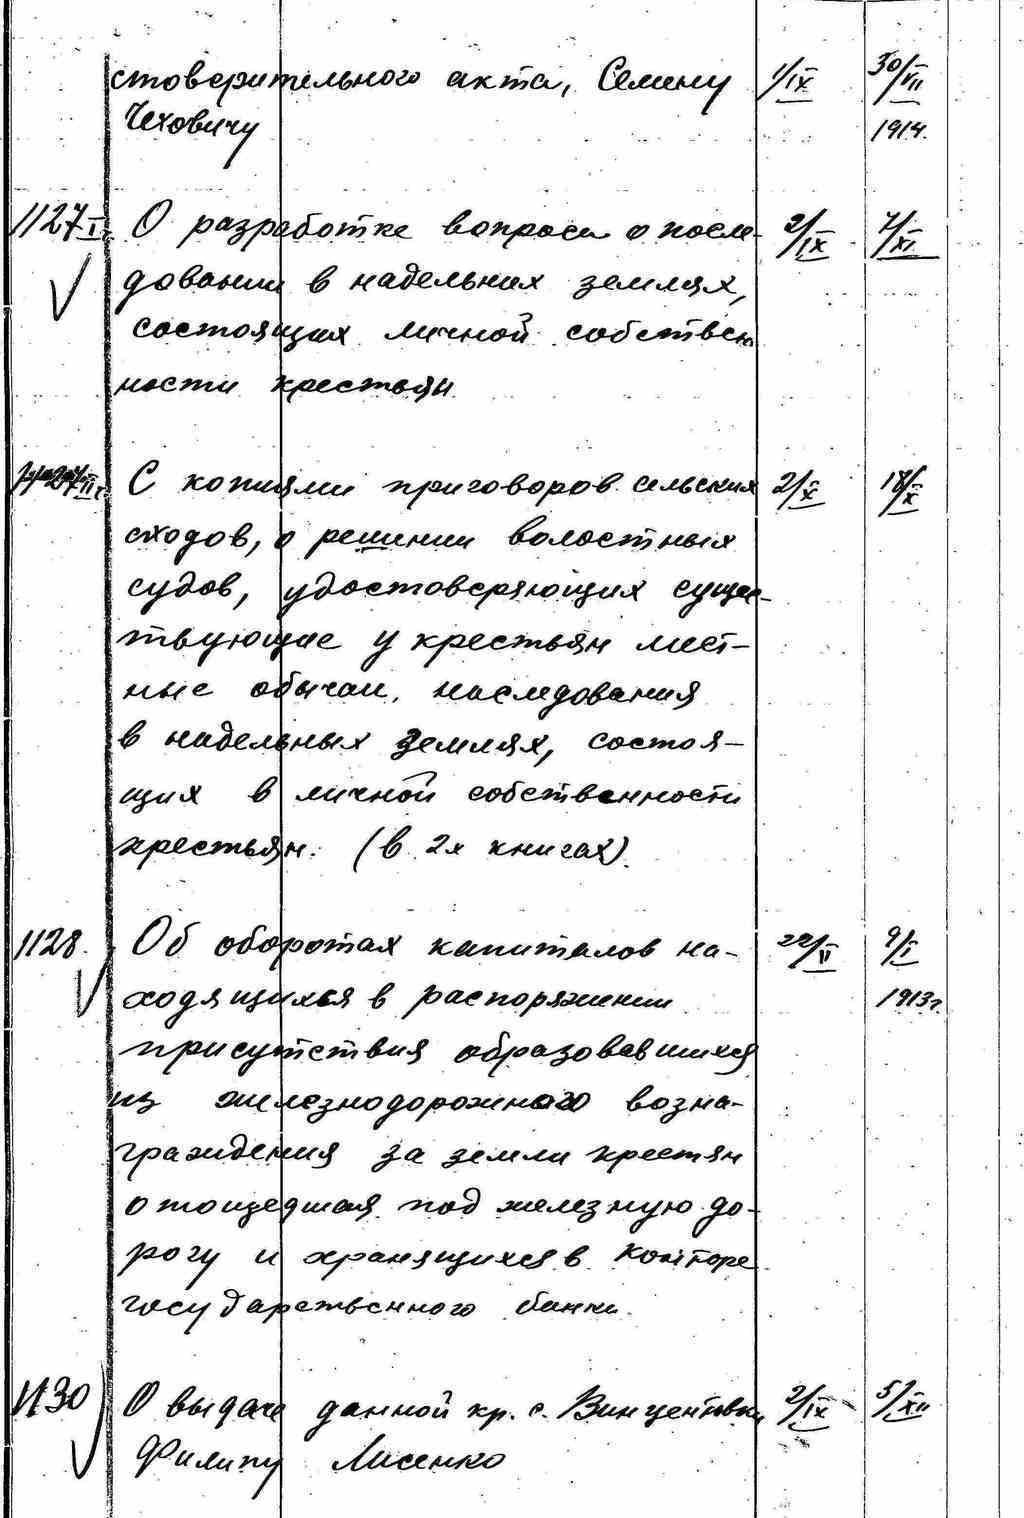 стоверительного акта, Семену 1/IX 30/VII
Чеховичу 1914.
1127 I. О разработке вопроса о после- 2/IX 7/XI
довании в надельных землях,
состоящих личной собствен
ности крестьян
1127 II. С копиями приговоров сельских 2/X 18/X
сходов, о решении волостных
судов, удостоверяющих сущес-
твующие у крестьян мест-
ные обычаи, наследования
в надельных землях, состоя-
щих в личной собственности
крестьян. (в 2х книгах).
1128. Об оборотах капиталов на- 22/V 9/I
ходящихся в распоряжении 1913г.
присутствия образовавшихся
из железнодорожного возна-
граждения за земли крестян
отошедшая под железную до-
рогу и хранящихся в Конторе
государственного банка.
1130 О выдаче данной кр. с. Винцентовки 2/IX 5/XII
Филипу Лисенко